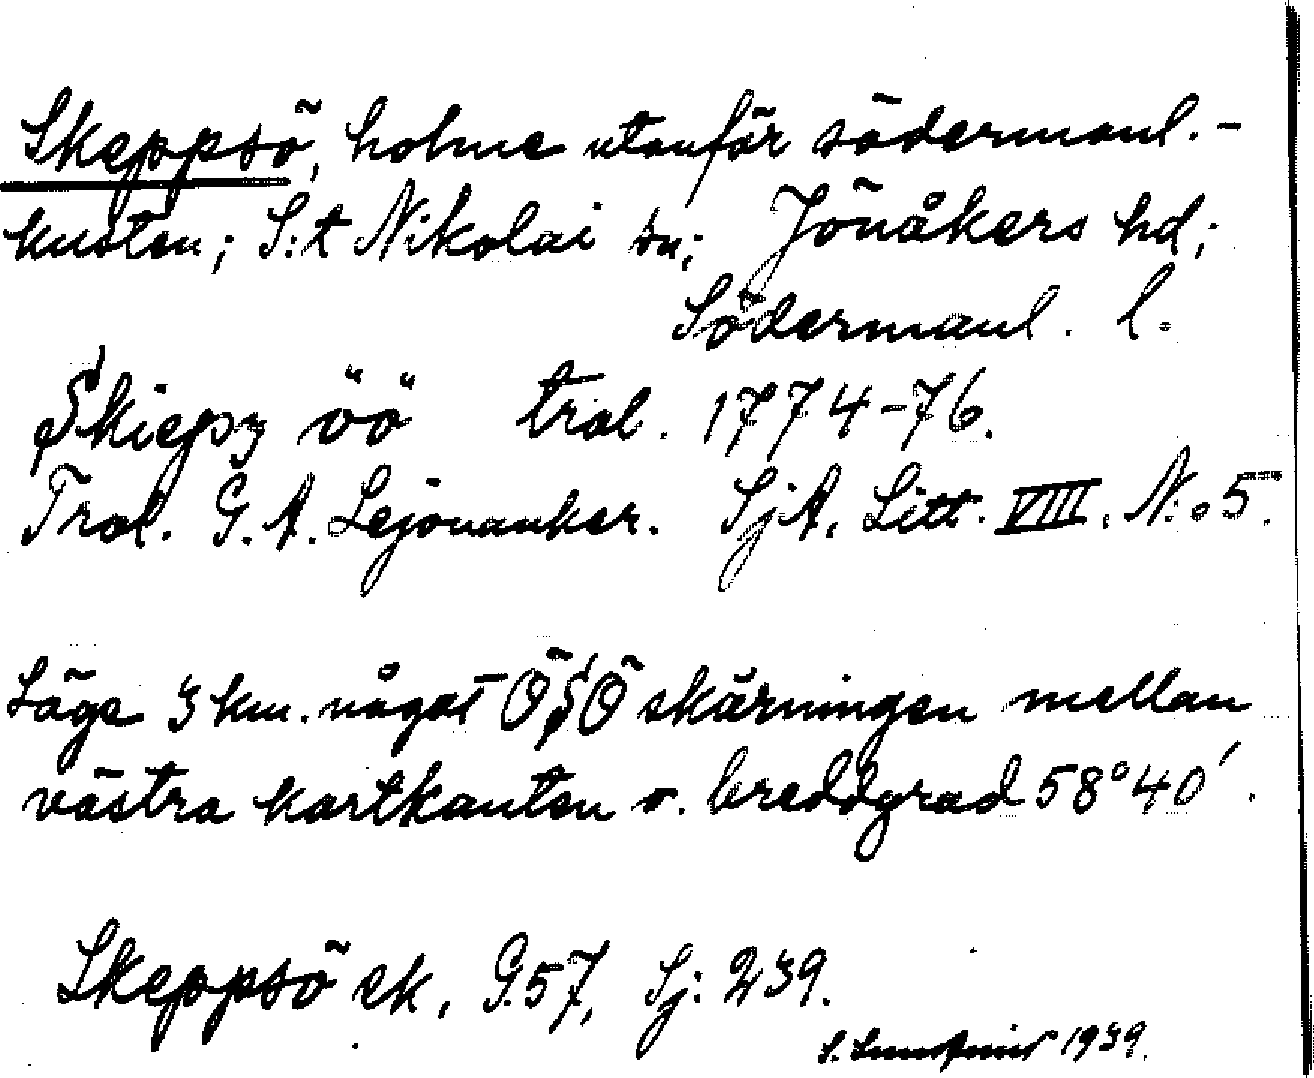 Skeppsö, holme utanför södermanl.-
kusten; S:t Nikolai sn; Jönåkers hd;
Södermanl. l.
Skiepz öö trol. 1774-76.
Trol. G. A. Lejonanker. SjA, Litt. VIII. N:o 5.
Läge 3 km. något ÖSÖ skärningen mellan
västra kartkanten o. breddgrad 58°40'.
Skeppsö ek, G.57, Sj: 239.
S. 1939.